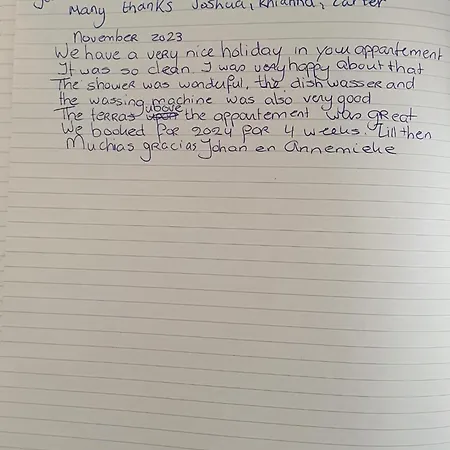 Many thanks Joshua, Rhianna, Carter
November 2023
We have a very nice holiday in your appartement
It was so clean. I was very happy about that
The shower was wanderful, the dishwasser and
the wassing machine was also very good
The terras above the appartement was great
We booked for 2024 for 4 weeks. Till then
Muchias gracias Johan en Annemieke